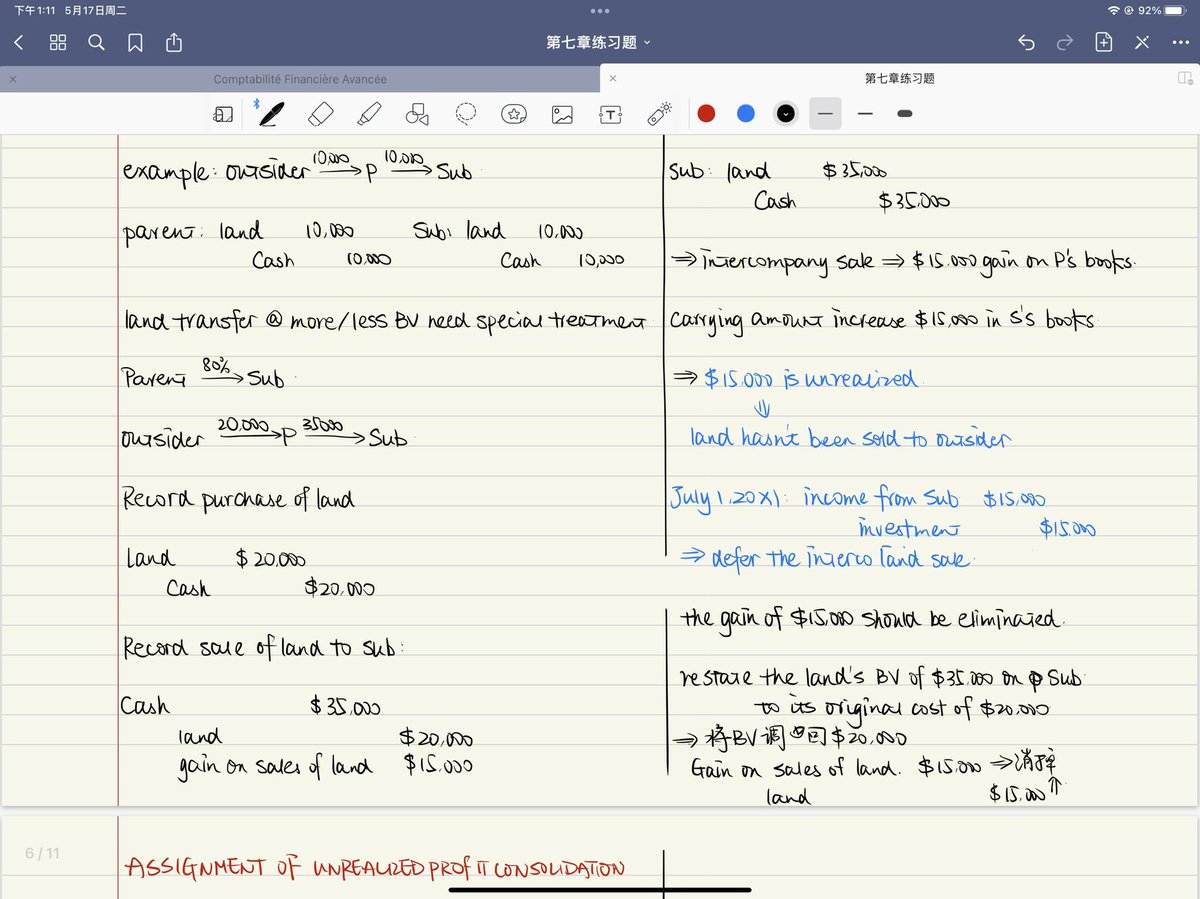 下午1:11 5月17日周二
92%
第七章练习题
Comptabilité Financière Avancée
第七章练习题
example: outsider 10,000 → P 10,000 → Sub
parent: land 10,000 Sub: land 10,000
Cash 10,000 Cash 10,000
land transfer @ more/less BV need special treatment
Parent 80% → Sub
outsider 20,000 → P 35000 → Sub
Record purchase of land
land $20,000
Cash $20,000
Record sale of land to sub:
Cash $35,000
land $20,000
gain on sales of land $15,000
Sub: land $35,000
Cash $35,000
⇒ intercompany sale ⇒ $15,000 gain on P's books.
carrying amount increase $15,000 in S's books
⇒ $15,000 is unrealized
⇓
land hasn't been sold to outsider
July 1, 20X1: income from Sub $15,000
investment $15,000
⇒ defer the interco land sale.
the gain of $15,000 should be eliminated.
restate the land's BV of $35,000 on Sub
to its original cost of $20,000
⇒ 将BV调回$20,000
Gain on sales of land. $15,000 ⇒消掉
land $15,000 ↑
6 / 11
ASSIGNMENT OF UNREALIZED PROFIT CONSOLIDATION